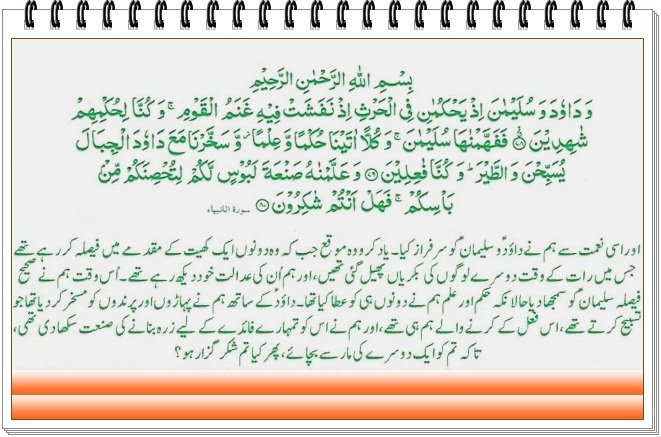 بِسْمِ اللهِ الرَّحْمٰنِ الرَّحِيْمِ
وَ دَاوٗدَ وَ سُلَيْمٰنَ اِذْ يَحْكُمٰنِ فِي الْحَرْثِ اِذْ نَفَشَتْ فِيْهِ غَنَمُ الْقَوْمِ ۚ وَ كُنَّا لِحُكْمِهِمْ
شٰهِدِيْنَ ﴿۷۸﴾ فَفَهَّمْنٰهَا سُلَيْمٰنَ ۚ وَ كُلًّا اٰتَيْنَا حُكْمًا وَّ عِلْمًا ۫ وَّ سَخَّرْنَا مَعَ دَاوٗدَ الْجِبَالَ
يُسَبِّحْنَ وَ الطَّيْرَ ؕ وَ كُنَّا فٰعِلِيْنَ ﴿۷۹﴾ وَ عَلَّمْنٰهُ صَنْعَةَ لَبُوْسٍ لَّكُمْ لِتُحْصِنَكُمْ مِّنْۢ
بَاْسِكُمْ ۚ فَهَلْ اَنْتُمْ شٰكِرُوْنَ ﴿۸۰﴾ سورة الانبياء
اور اسی نعمت سے ہم نے داؤدؑ و سلیمانؑ کو سرفراز کیا۔ یاد کرو وہ موقع جب کہ وہ دونوں ایک کھیت کے مقدمے میں فیصلہ کر رہے تھے
جس میں رات کے وقت دوسرے لوگوں کی بکریاں پھیل گئی تھیں، اور ہم اُن کی عدالت خود دیکھ رہے تھے۔ اُس وقت ہم نے صحیح
فیصلہ سلیمانؑ کو سمجھا دیا حالانکہ حکم اور علم ہم نے دونوں ہی کو عطا کیا تھا۔ داؤدؑ کے ساتھ ہم نے پہاڑوں اور پرندوں کو مسخر کر دیا تھا جو
تسبیح کرتے تھے، اس فعل کے کرنے والے ہم ہی تھے، اور ہم نے اس کو تمہارے فائدے کے لیے زرہ بنانے کی صنعت سکھا دی تھی،
تاکہ تم کو ایک دوسرے کی مار سے بچائے، پھر کیا تم شکر گزار ہو؟